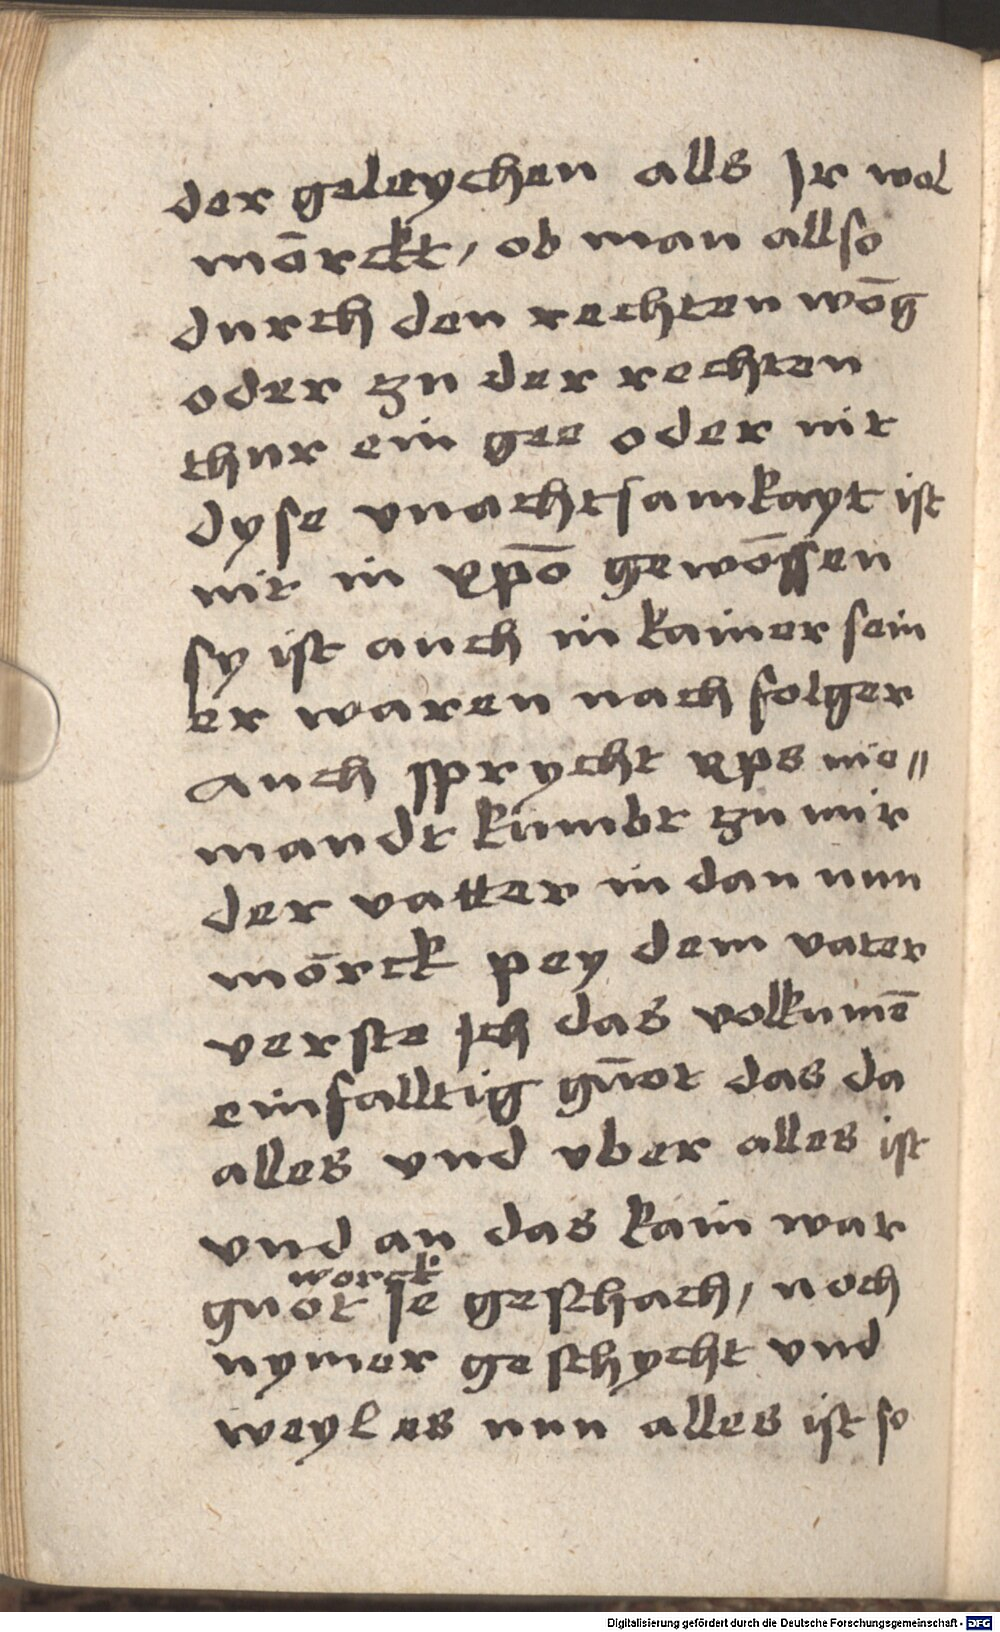 der geleychen alls Ir wol
mōrckt, ob man allso
durch den rechten wōg
oder zu der rechten
thur ein gee oder nit
dyse vnachtsamkayt ist
nit in xpō gewōssen
sy ist auch in kainer sein
er waren nach folger
Auch sprycht xps nie〃
mandt kumbt zu mir
der vatter in dan nun
mōrck pey dem vater
verste Ich das volkumē
einfalltig gūot das da
alles vnd vber alles ist
vnd an das kain war
worck
guot se geschach, noch
nymer geschycht vnd
weyl es nun alles ist so
Digitalisierung gefördert durch die Deutsche Forschungsgemeinschaft - DFG